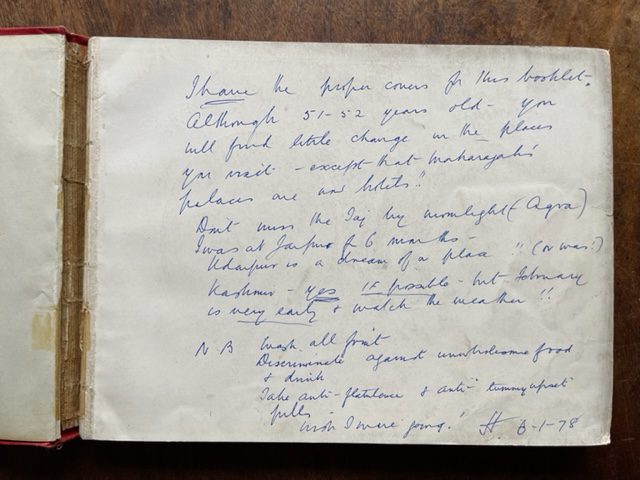 I have the proper covers for this booklet.
Although 51-52 years old - you
will find little change in the places
you visit - except that maharajah's
palaces are now hotels!!
Don't miss the Taj by moonlight (Agra)
I was at Jaipur for 6 months -
Udaipur is a dream of a place !! (or was!)
Kashmir - yes IF possible - but February
is very early & watch the weather !!
N B Wash all fruit
Discriminate against unwholesome food
& drink
Take anti-flatulence & anti-tummy upset
pills
wish I were going! H. 6-1-78